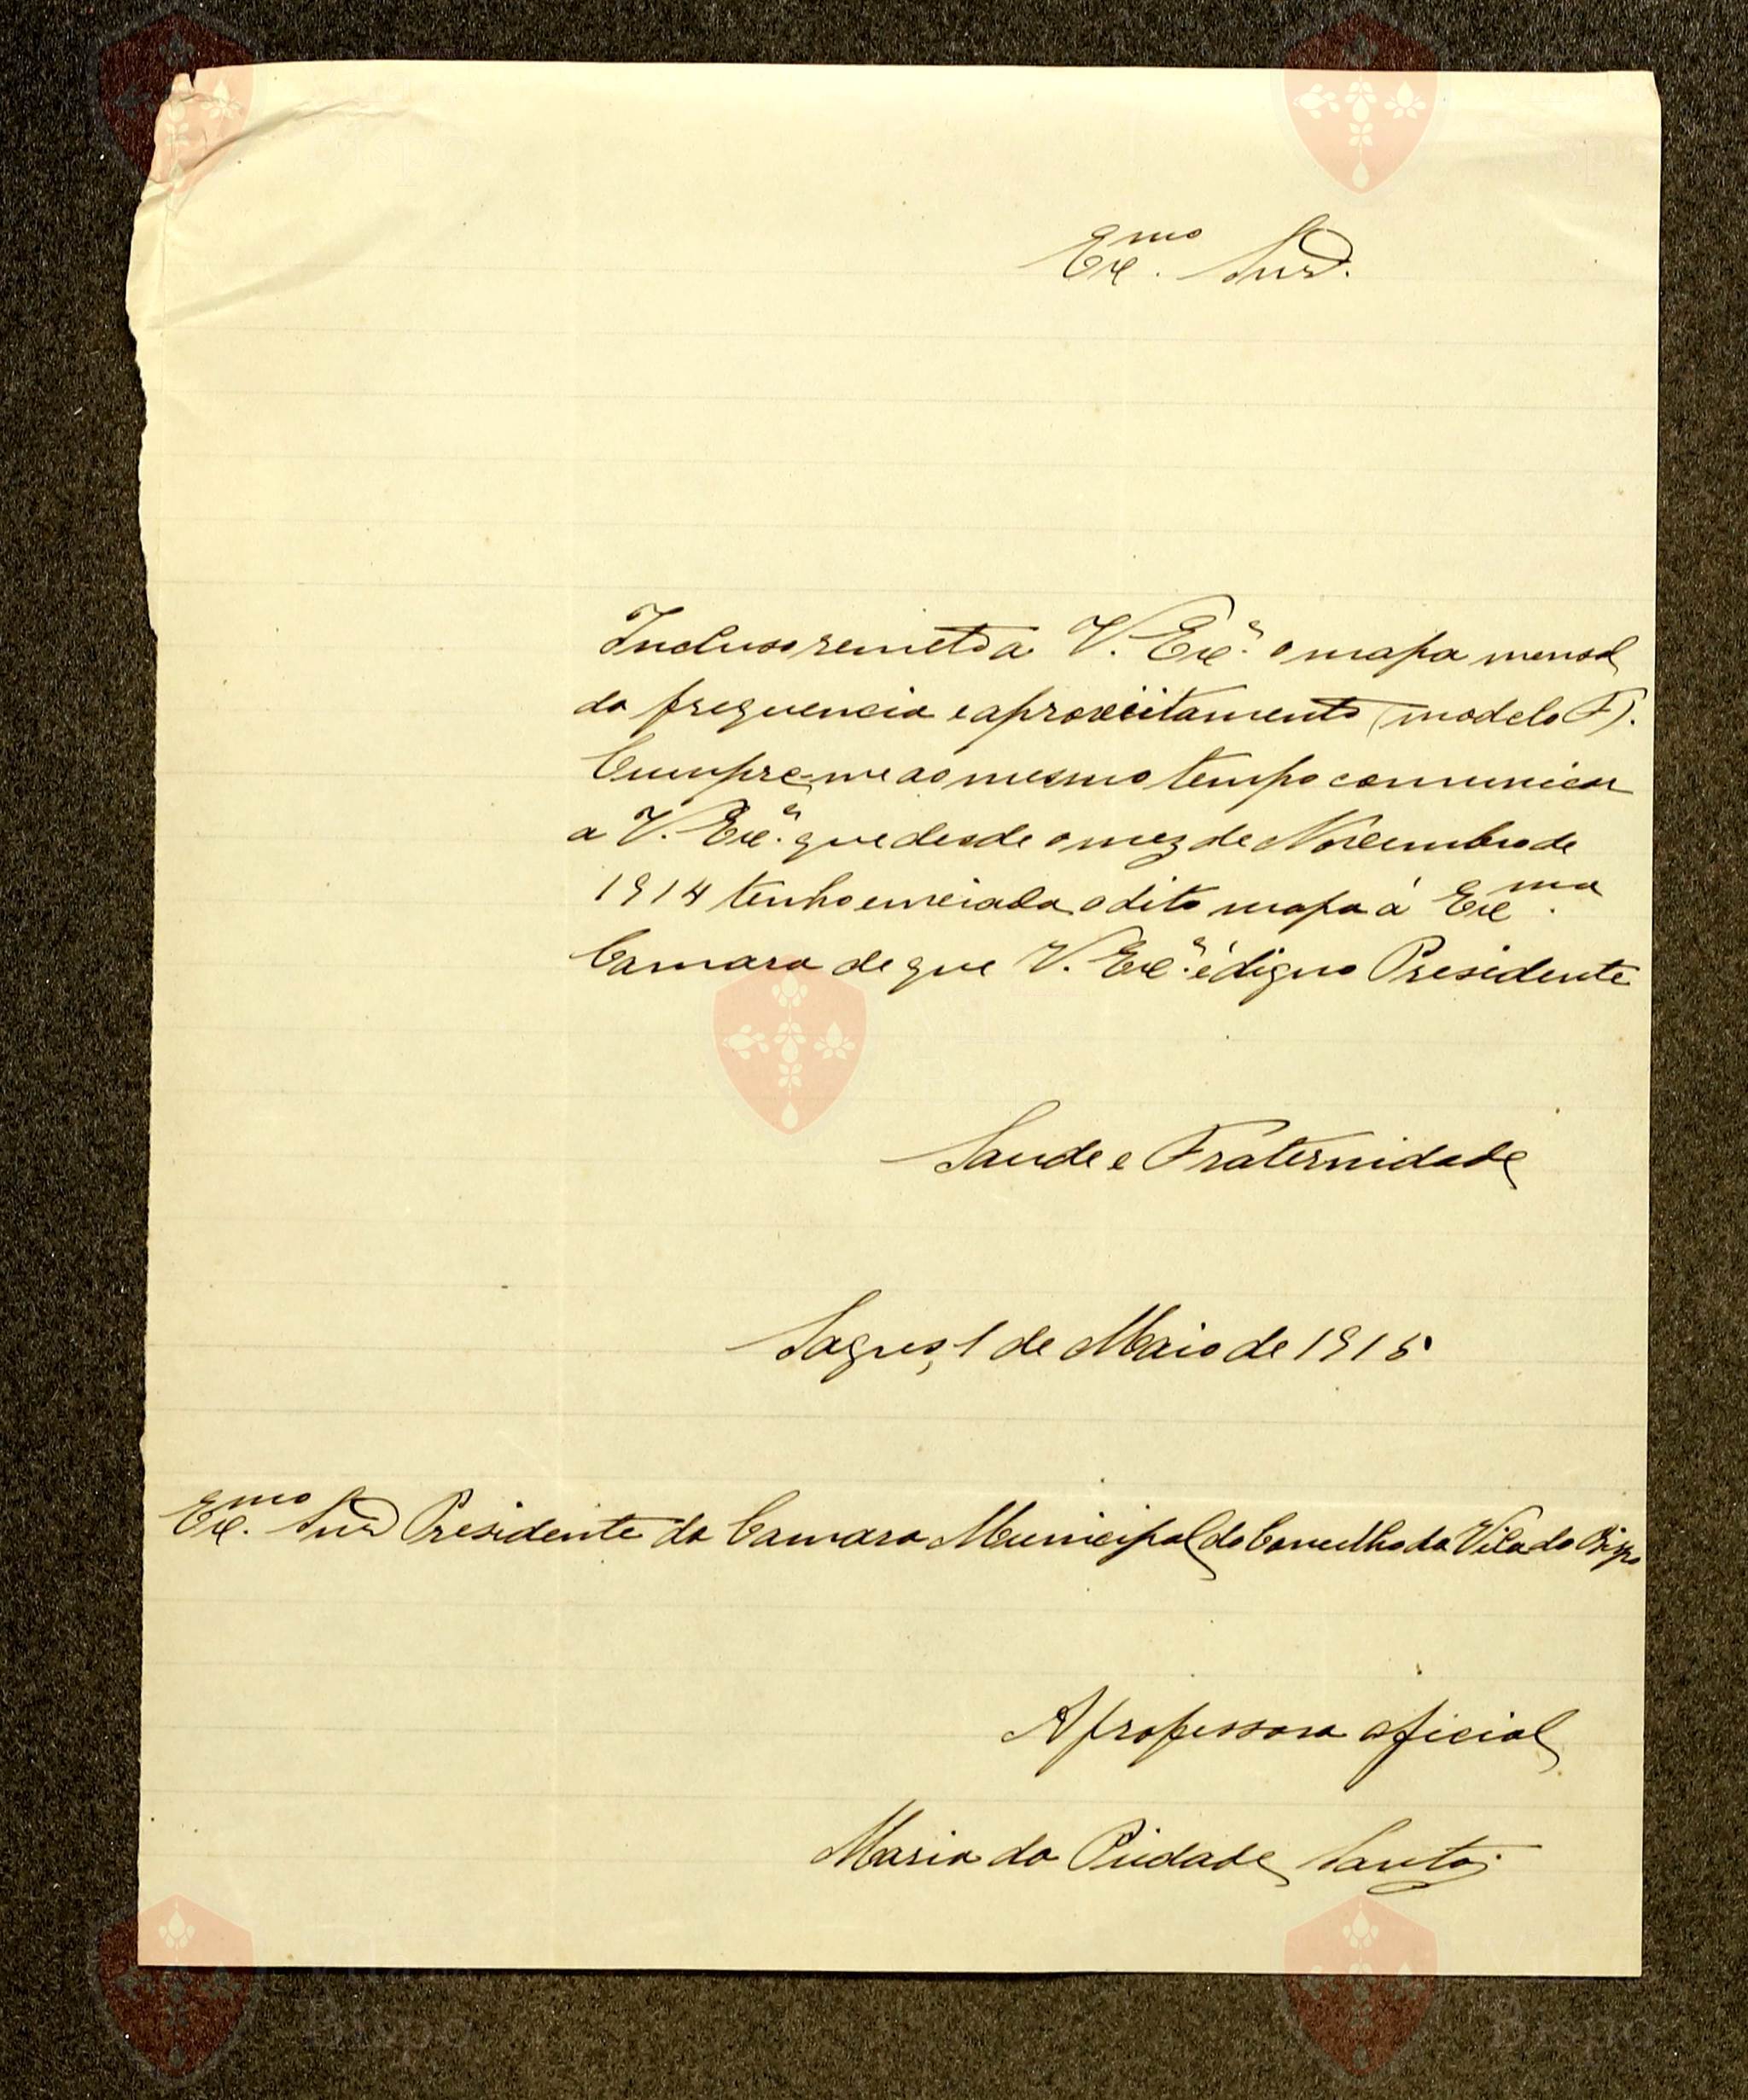 Ex.mo Snr.
Incluso remeto a V. Ex.ª o mapa mensal
da frequencia e aproveitamento (modelo F).
Cumpre-me ao mesmo tempo comunicar
a V. Ex.ª que desde o mez de Novembro de
1914 tenho enviado o dito mapa á Ex.ma
Camara de que V. Ex.ª é digno Presidente
Saude e Fraternidade
Sagres, 1 de Maio de 1915
Ex.mo Snr Presidente da Camara Municipal do Concelho da Vila do Bispo
A professora oficial
Maria da Piedade Santos